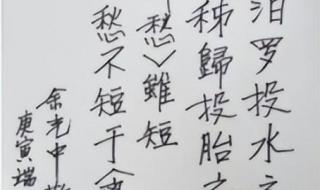 汨罗投水之
秭歸投胎之
愁〉雖短
愁不短于
余光中
庚寅端